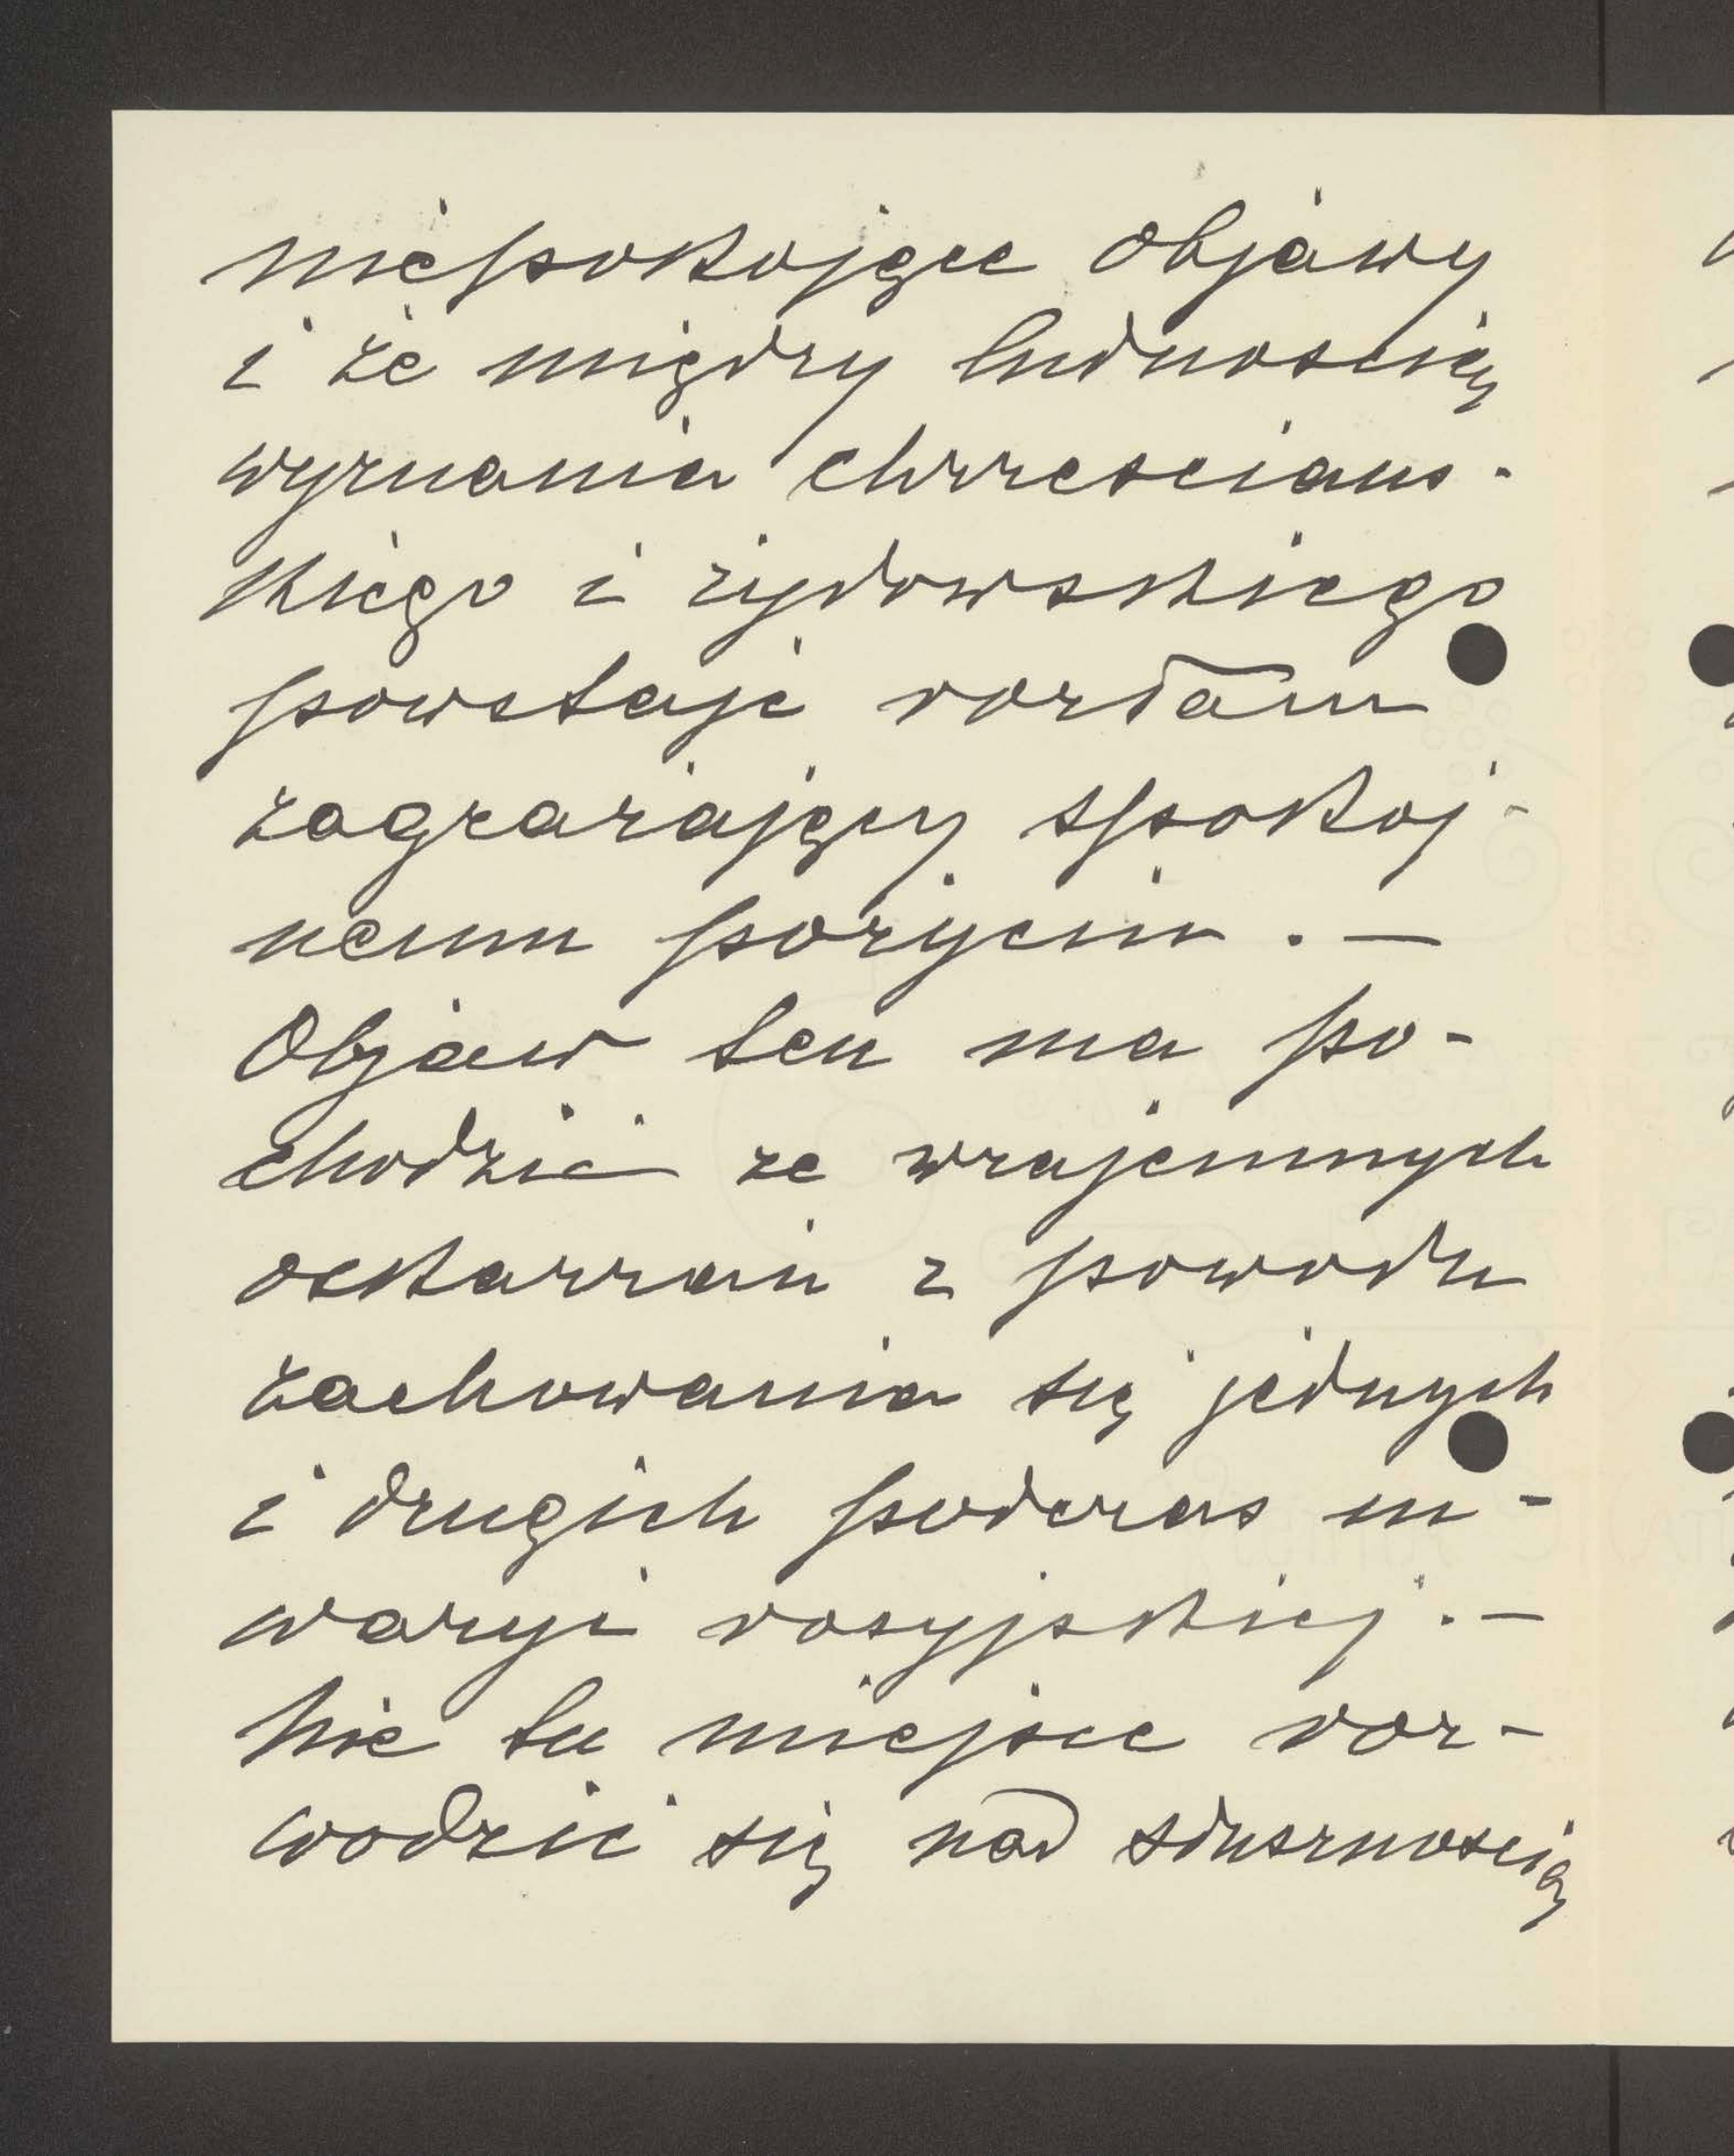 niepokojące objawy
i że między ludnością
wyznania chrześcians-
kiego i żydowskiego
powstaje rozłam
zagrażający spokoj-
nemu pożyciu. —
Objaw ten ma po-
chodzić ze wzajemnych
oskarżań z powodu
zachowania się jednych
i drugich podczas in-
wazyi rosyjskiej. —
Nie tu miejsce roz-
wodzić się nad słusznością